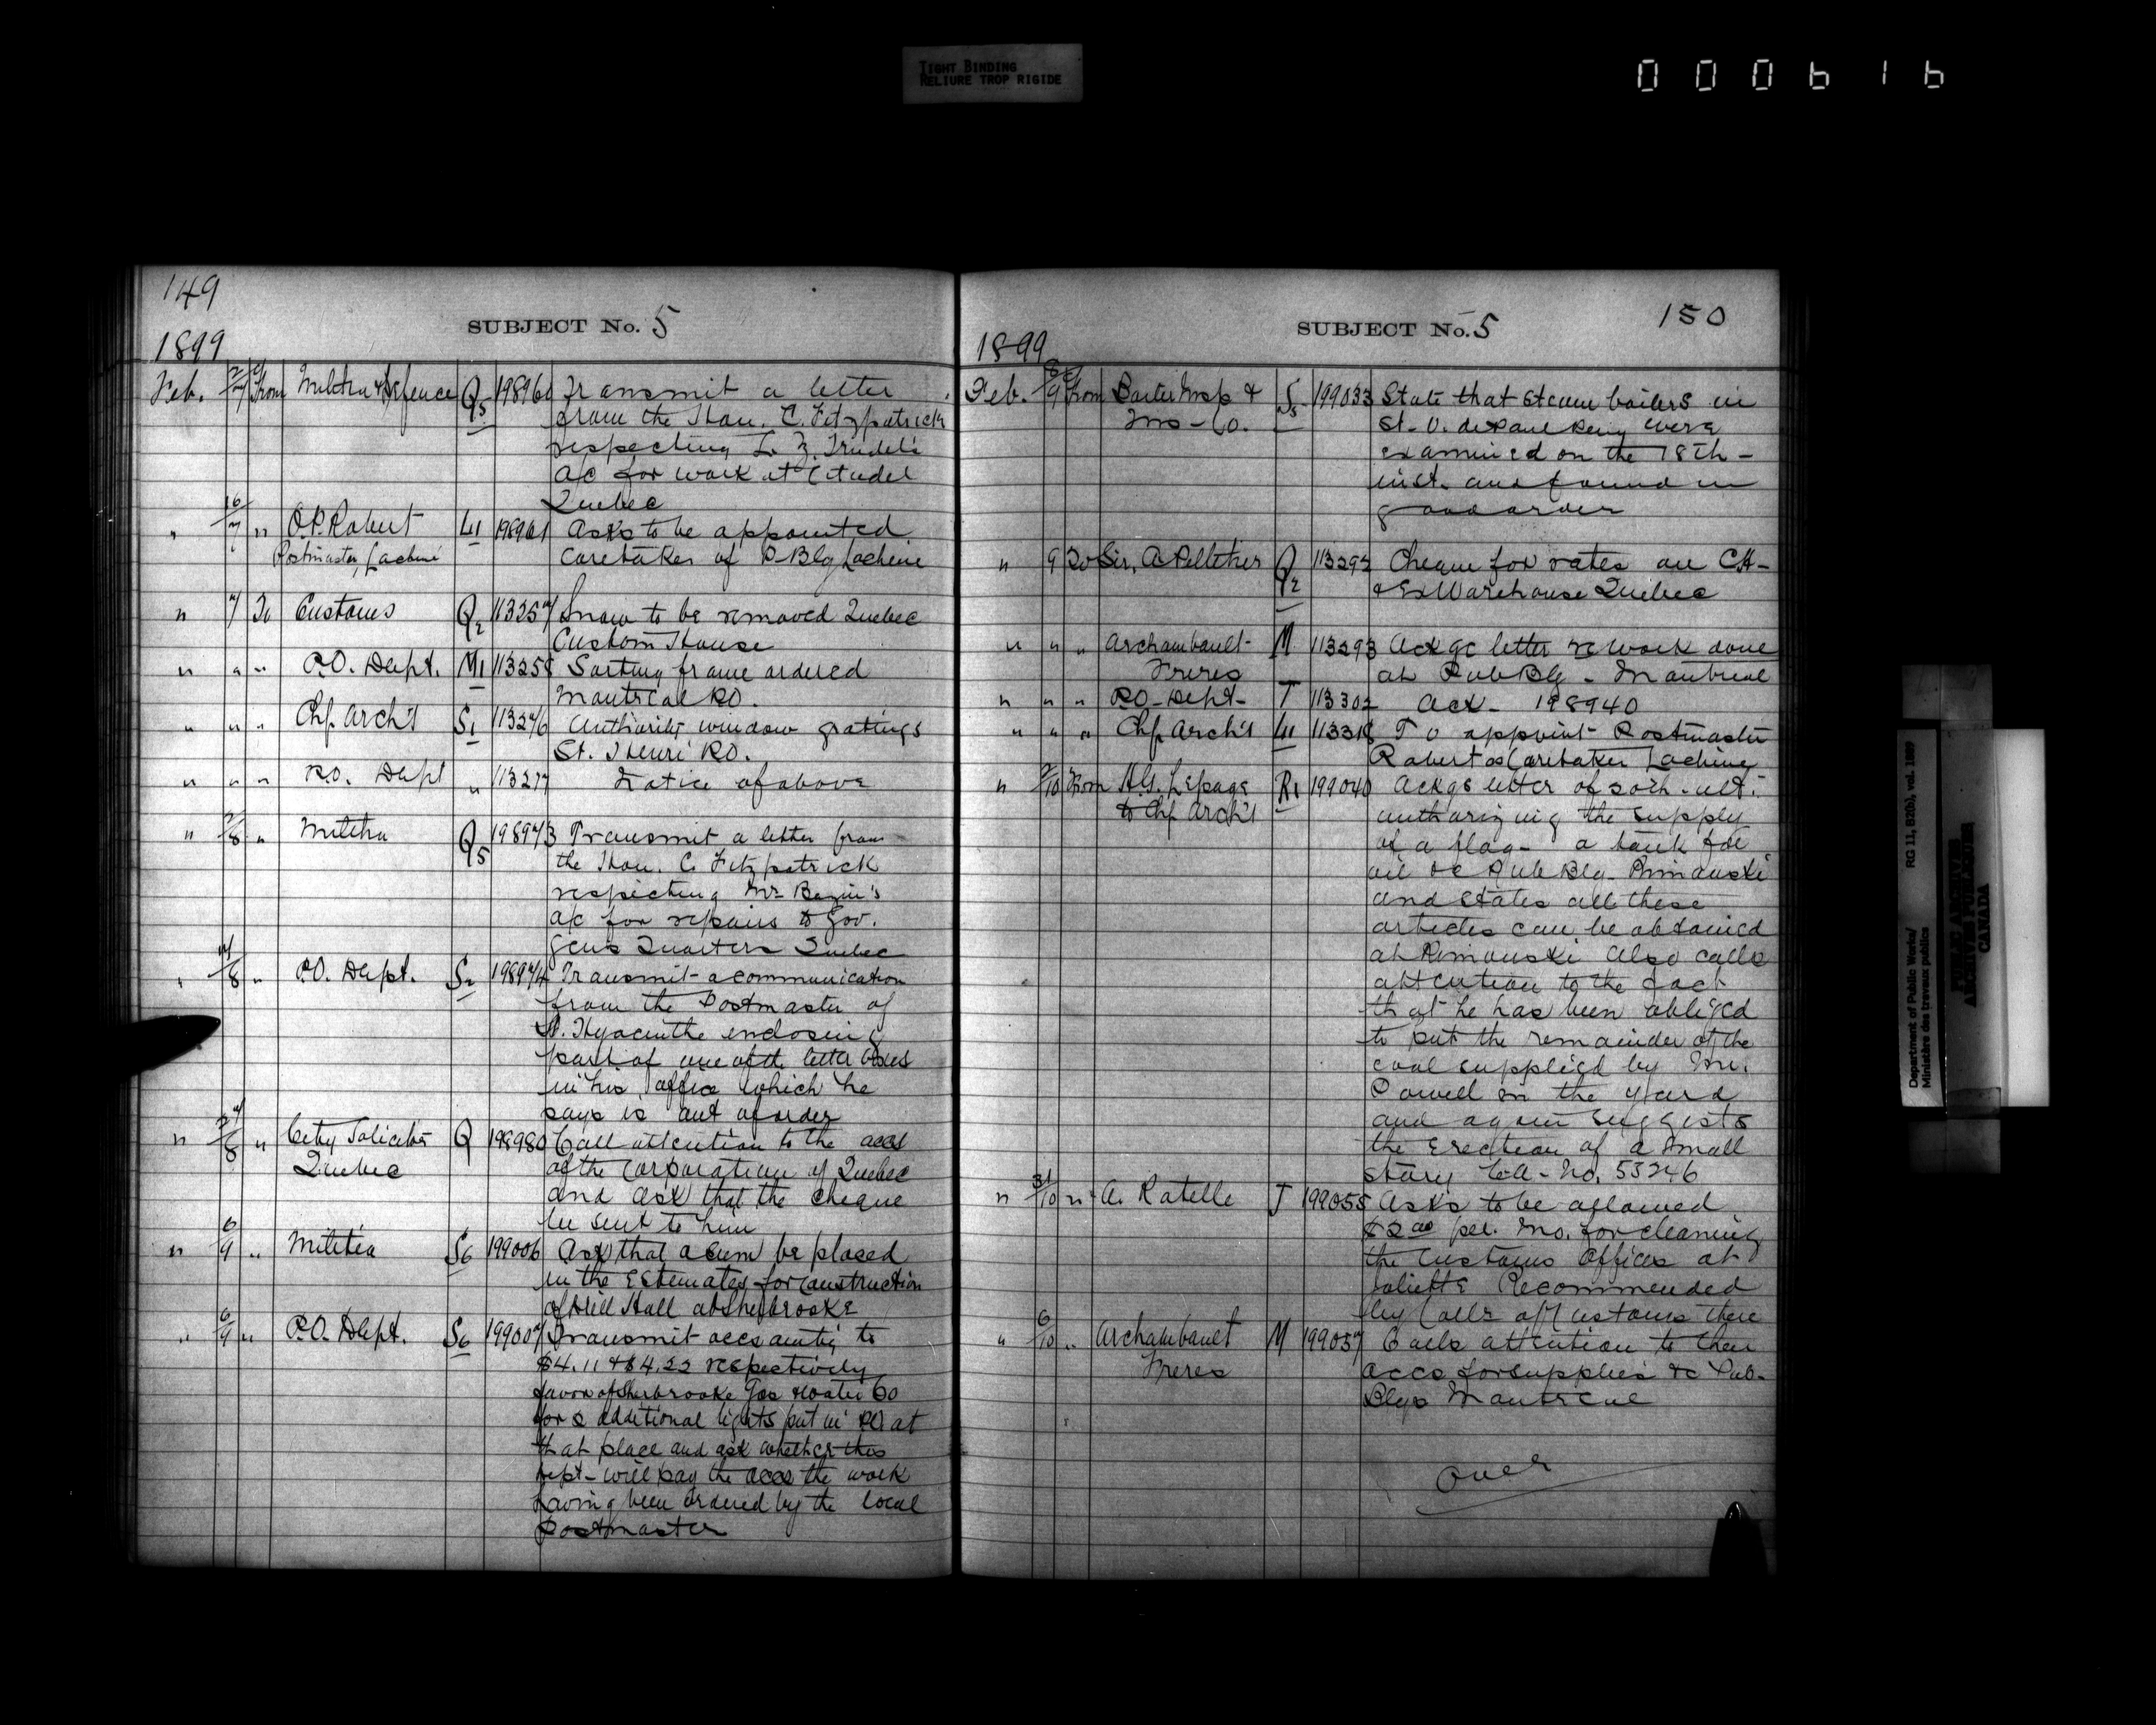 TIGHT BINDING
RELIURE TROP RIGIDE
000616
149
SUBJECT No. 5
1899
Feb. 2/7 From Militia & Defence Q5 198960 Transmit a letter
from the Hon. C. Fitzpatrick
respecting L. Z. Trudel's
a/c for work at Citadel
Quebec
" 16/7 " O.P. Robert L11 198961 Asks to be appointed
Postmaster, Lachine caretaker of P-Blg Lachine
" 7 To Customs Q2 113257 Snow to be removed Quebec
Custom House
" " " P.O. Dept. M1 113258 Sorting frame ordered
Montreal P.O.
" " " Chf Arch't S1 113276 Authority window gratings
St. Henri P.O.
" " " P.O. Dept " 113277 Notice of above
" 2/8 " Militia Q5 198973 Transmit a letter from
the Hon. C. Fitzpatrick
respecting Mr Begin's
a/c for repairs to Gov.
Gen's Quarters Quebec
" 7/8 " P.O. Dept. S2 198974 Transmit a communication
from the Postmaster of
St. Hyacinthe enclosing
part of one of the letter boxes
in his office which he
says is out of order
" 27/8 " City Solicitor Q 198980 Call attention to the accs
Quebec of the Corporation of Quebec
and ask that the cheque
be sent to him
" 6/9 " Militia S6 199006 Ask that a sum be placed
in the Estimates for construction
of Drill Hall at Sherbrooke
" 6/9 " P.O. Dept. S6 199007 Transmit accs amtg to
$4.11 & $4.22 respectively
favor of Sherbrooke Gas & Water Co
for 2 additional lights put in P.O. at
that place and ask whether this
Dept - will pay the accs the work
having been ordered by the local
Postmaster
150
SUBJECT No. 5
1899
Feb. 8/9 From Boiler Insp & S5 199033 State that steam boilers in
Ins - Co. St. V. de Paul Peny were
examined on the 18th -
inst. and found in
good order
" 9 To Sir, A Pelletier Q2 113292 Cheque for rates on CH -
& Ex Warehouse Quebec
" " " Archambault - M 113293 Ackge letter re work done
Freres at Pub Blg - Montreal
" " " P.O. Dept - T 113302 Ack - 198940
" " " Chf Arch't L11 113318 To appoint Postmaster
Robert as Caretaker Lachine
" 2/10 From H.G. Lepage R1 199040 Ackgs letter of 30th - ult:
to Chf Arch't authorizing the supply
of a flag - a tank for
oil &c Pub Blg - Rimouski
and states all these
articles can be obtained
at Rimouski Also calls
attention to the fact
that he has been obliged
to put the remainder of the
coal supplied by Mr.
Powell in the yard
and again suggests
the erection of a small
story No. 53246
" 31/10 " A. Ratelle J 199055 Asks to be allowed
$2.00 per. Mo. for cleaning
the Customs Offices at
Joliette Recommended
by Collr of Customs there
" 6/10 " Archambault M 199057 Calls attention to their
Freres accs for supplies &c Pub.
Blgs Montreal
Over
Department of Public Works/
Ministère des travaux publics
RG 11, B2(b), vol. 1889
PUBLIC ARCHIVES
ARCHIVES PUBLIQUES
CANADA